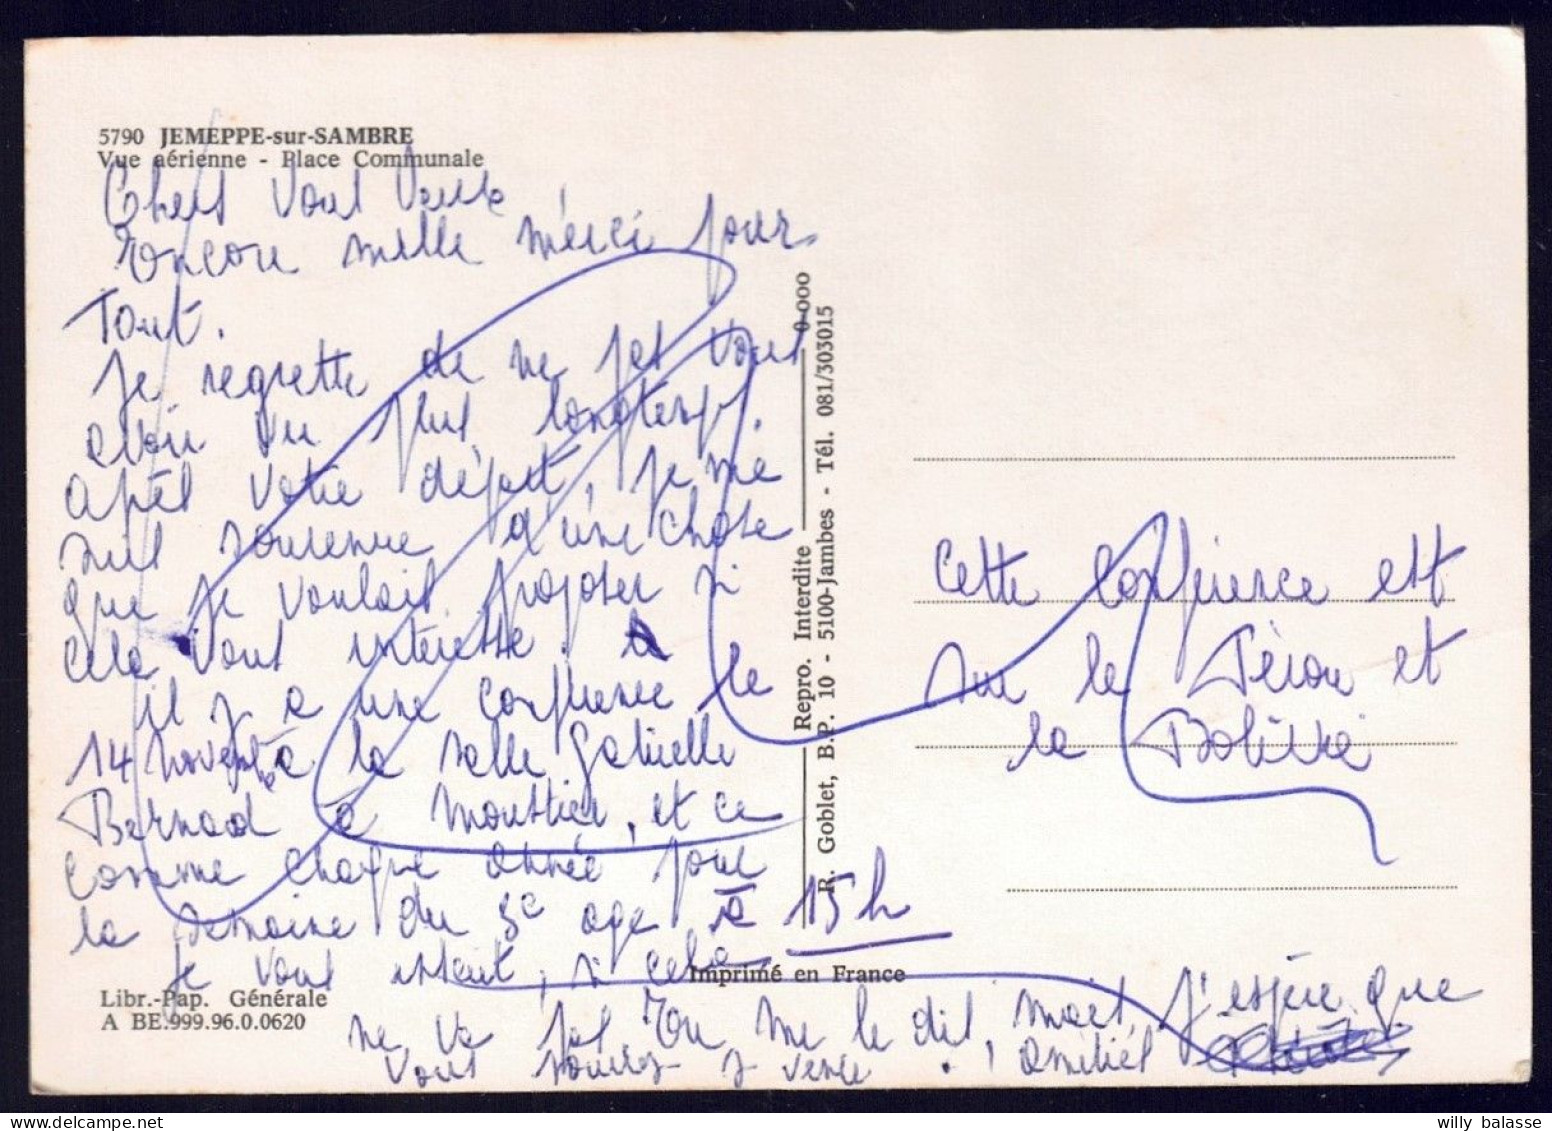 5790 JEMEPPE-sur-SAMBRE
Vue aérienne - Place Communale
Chers Vous Deux
Encore mille merci pour
Tout.
Je regrette de ne pas vous
avoir vu plus longtemps.
Après votre départ, je me
suis souvenue d'une chose
que je voulais proposer si
cela vous intéresse.
il y a une conférence le
14 novembre à la salle Gabrielle
Bernard à Moustier, et ce
comme chaque année pour
la semaine du 3e age à 15h
Je vous attent, si cela
ne va pas, me le dit, merci, j'espère que
vous pourez y venir. ! Amitiés
Cette conférence est
sur le Pérou et
la Bolivie
Libr.-Pap. Générale
A BE.999.96.0.0620
Imprimé en France
R. Goblet, B.P. 10 - 5100-Jambes - Tél. 081/303015
Repro. Interdite
0-000
willy balasse